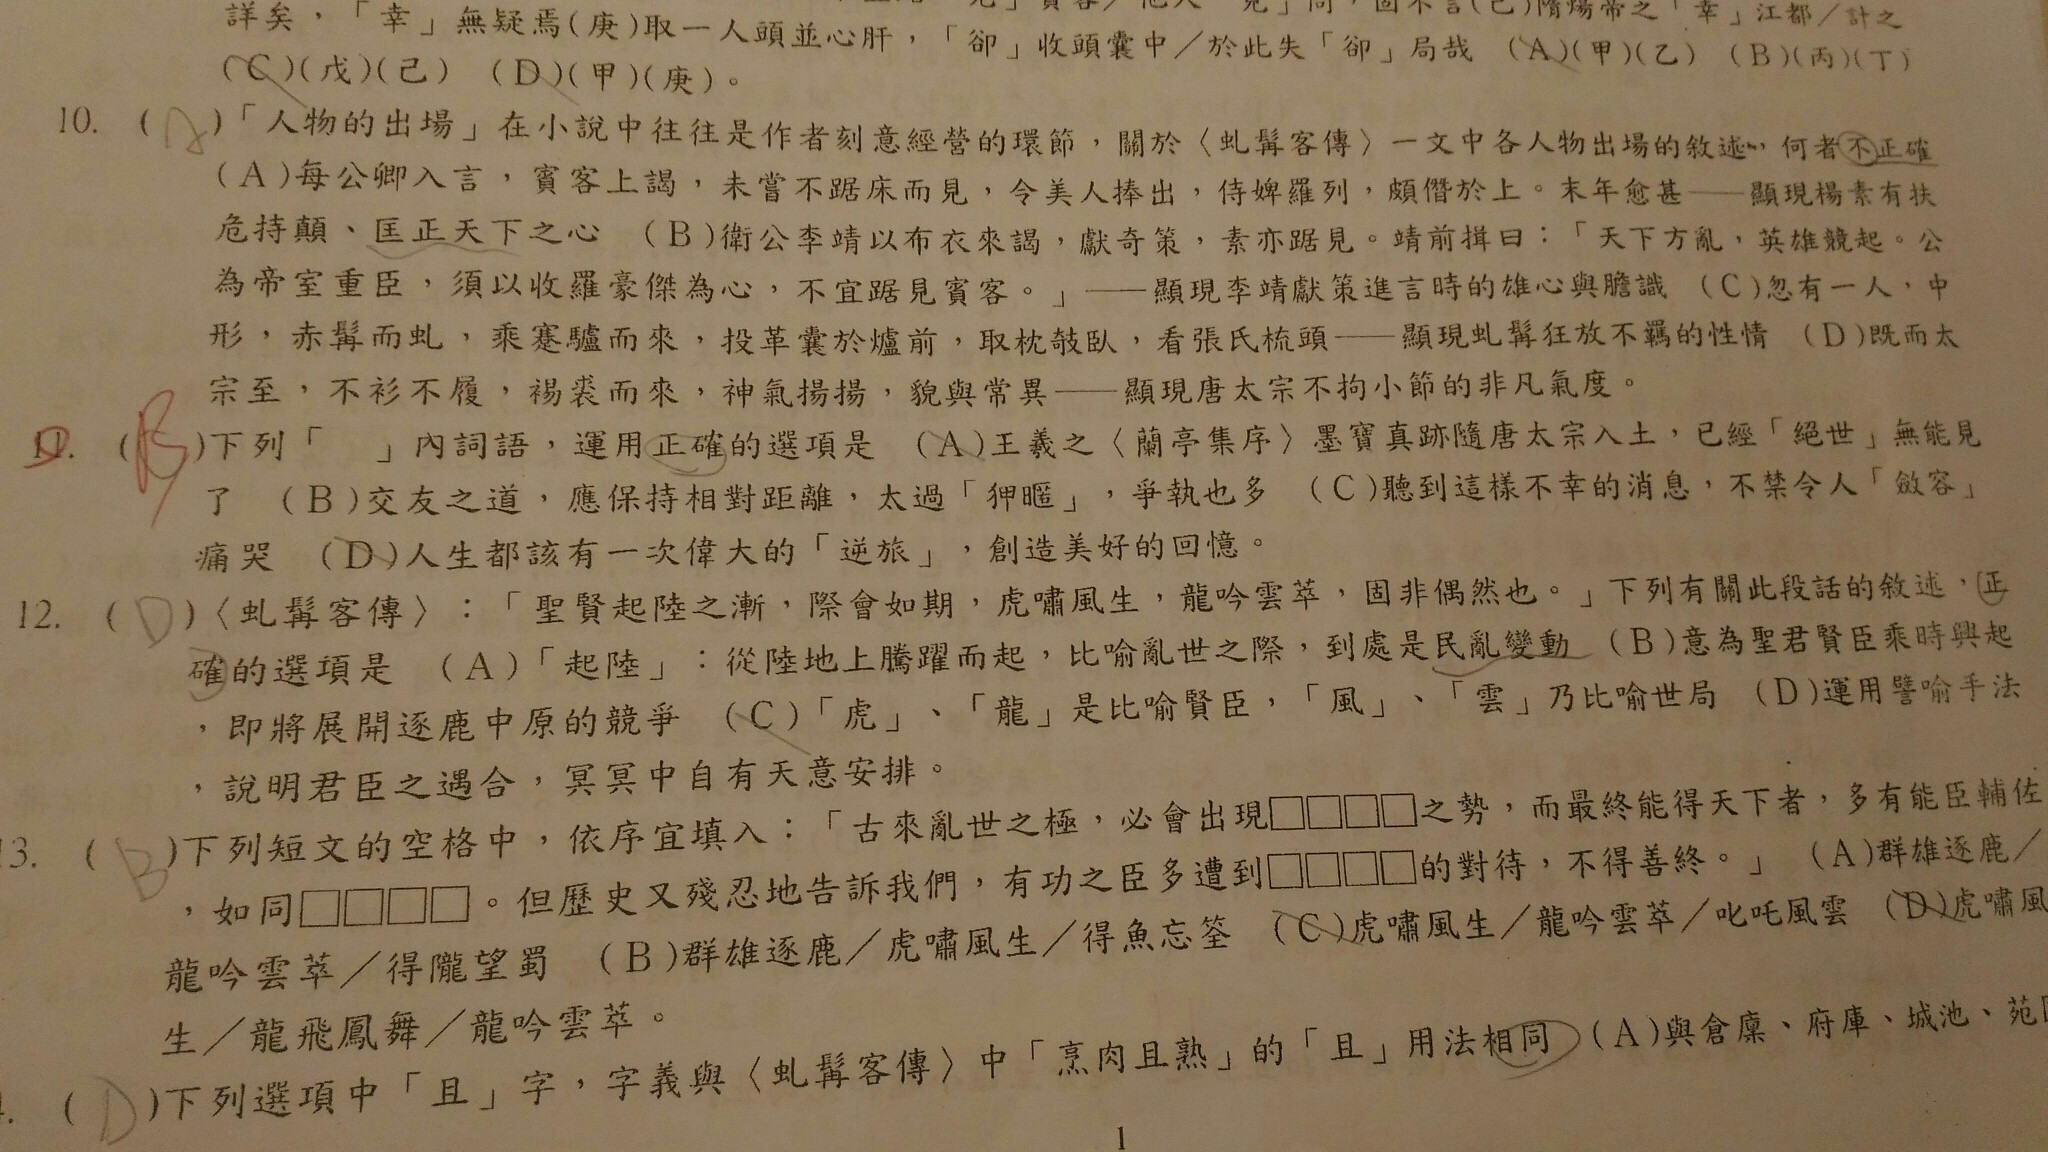 詳矣，「幸」無疑焉(庚)取一人頭並心肝，「卻」收頭囊中／於此失「卻」局哉 (A)(甲)(乙) (B)(丙)(丁)
(C)(戊)(己) (D)(甲)(庚)。
10. (A)「人物的出場」在小說中往往是作者刻意經營的環節，關於〈虬髯客傳〉一文中各人物出場的敘述，何者不正確
(A)每公卿入言，賓客上謁，未嘗不踞床而見，令美人捧出，侍婢羅列，頗僭於上。末年愈甚——顯現楊素有扶
危持顛、匡正天下之心 (B)衛公李靖以布衣來謁，獻奇策，素亦踞見。靖前揖曰：「天下方亂，英雄競起。公
為帝室重臣，須以收羅豪傑為心，不宜踞見賓客。」——顯現李靖獻策進言時的雄心與膽識 (C)忽有一人，中
形，赤髯而虬，乘蹇驢而來，投革囊於爐前，取枕攲臥，看張氏梳頭——顯現虬髯狂放不羈的性情 (D)既而太
宗至，不衫不履，裼裘而來，神氣揚揚，貌與常異——顯現唐太宗不拘小節的非凡氣度。
11. (B)下列「 」內詞語，運用正確的選項是 (A)王羲之〈蘭亭集序〉墨寶真跡隨唐太宗入土，已經「絕世」無能見
了 (B)交友之道，應保持相對距離，太過「狎暱」，爭執也多 (C)聽到這樣不幸的消息，不禁令人「斂容」
痛哭 (D)人生都該有一次偉大的「逆旅」，創造美好的回憶。
12. (D)〈虬髯客傳〉：「聖賢起陸之漸，際會如期，虎嘯風生，龍吟雲萃，固非偶然也。」下列有關此段話的敘述，正
確的選項是 (A)「起陸」：從陸地上騰躍而起，比喻亂世之際，到處是民亂變動 (B)意為聖君賢臣乘時興起
，即將展開逐鹿中原的競爭 (C)「虎」、「龍」是比喻賢臣，「風」、「雲」乃比喻世局 (D)運用譬喻手法
，說明君臣之遇合，冥冥中自有天意安排。
13. (B)下列短文的空格中，依序宜填入：「古來亂世之極，必會出現□□□□之勢，而最終能得天下者，多有能臣輔佐
，如同□□□□。但歷史又殘忍地告訴我們，有功之臣多遭到□□□□的對待，不得善終。」 (A)群雄逐鹿／
龍吟雲萃／得隴望蜀 (B)群雄逐鹿／虎嘯風生／得魚忘筌 (C)虎嘯風生／龍吟雲萃／叱吒風雲 (D)虎嘯風
生／龍飛鳳舞／龍吟雲萃。
(D)下列選項中「且」字，字義與〈虬髯客傳〉中「烹肉且熟」的「且」用法相同 (A)與倉廩、府庫、城池、苑
1